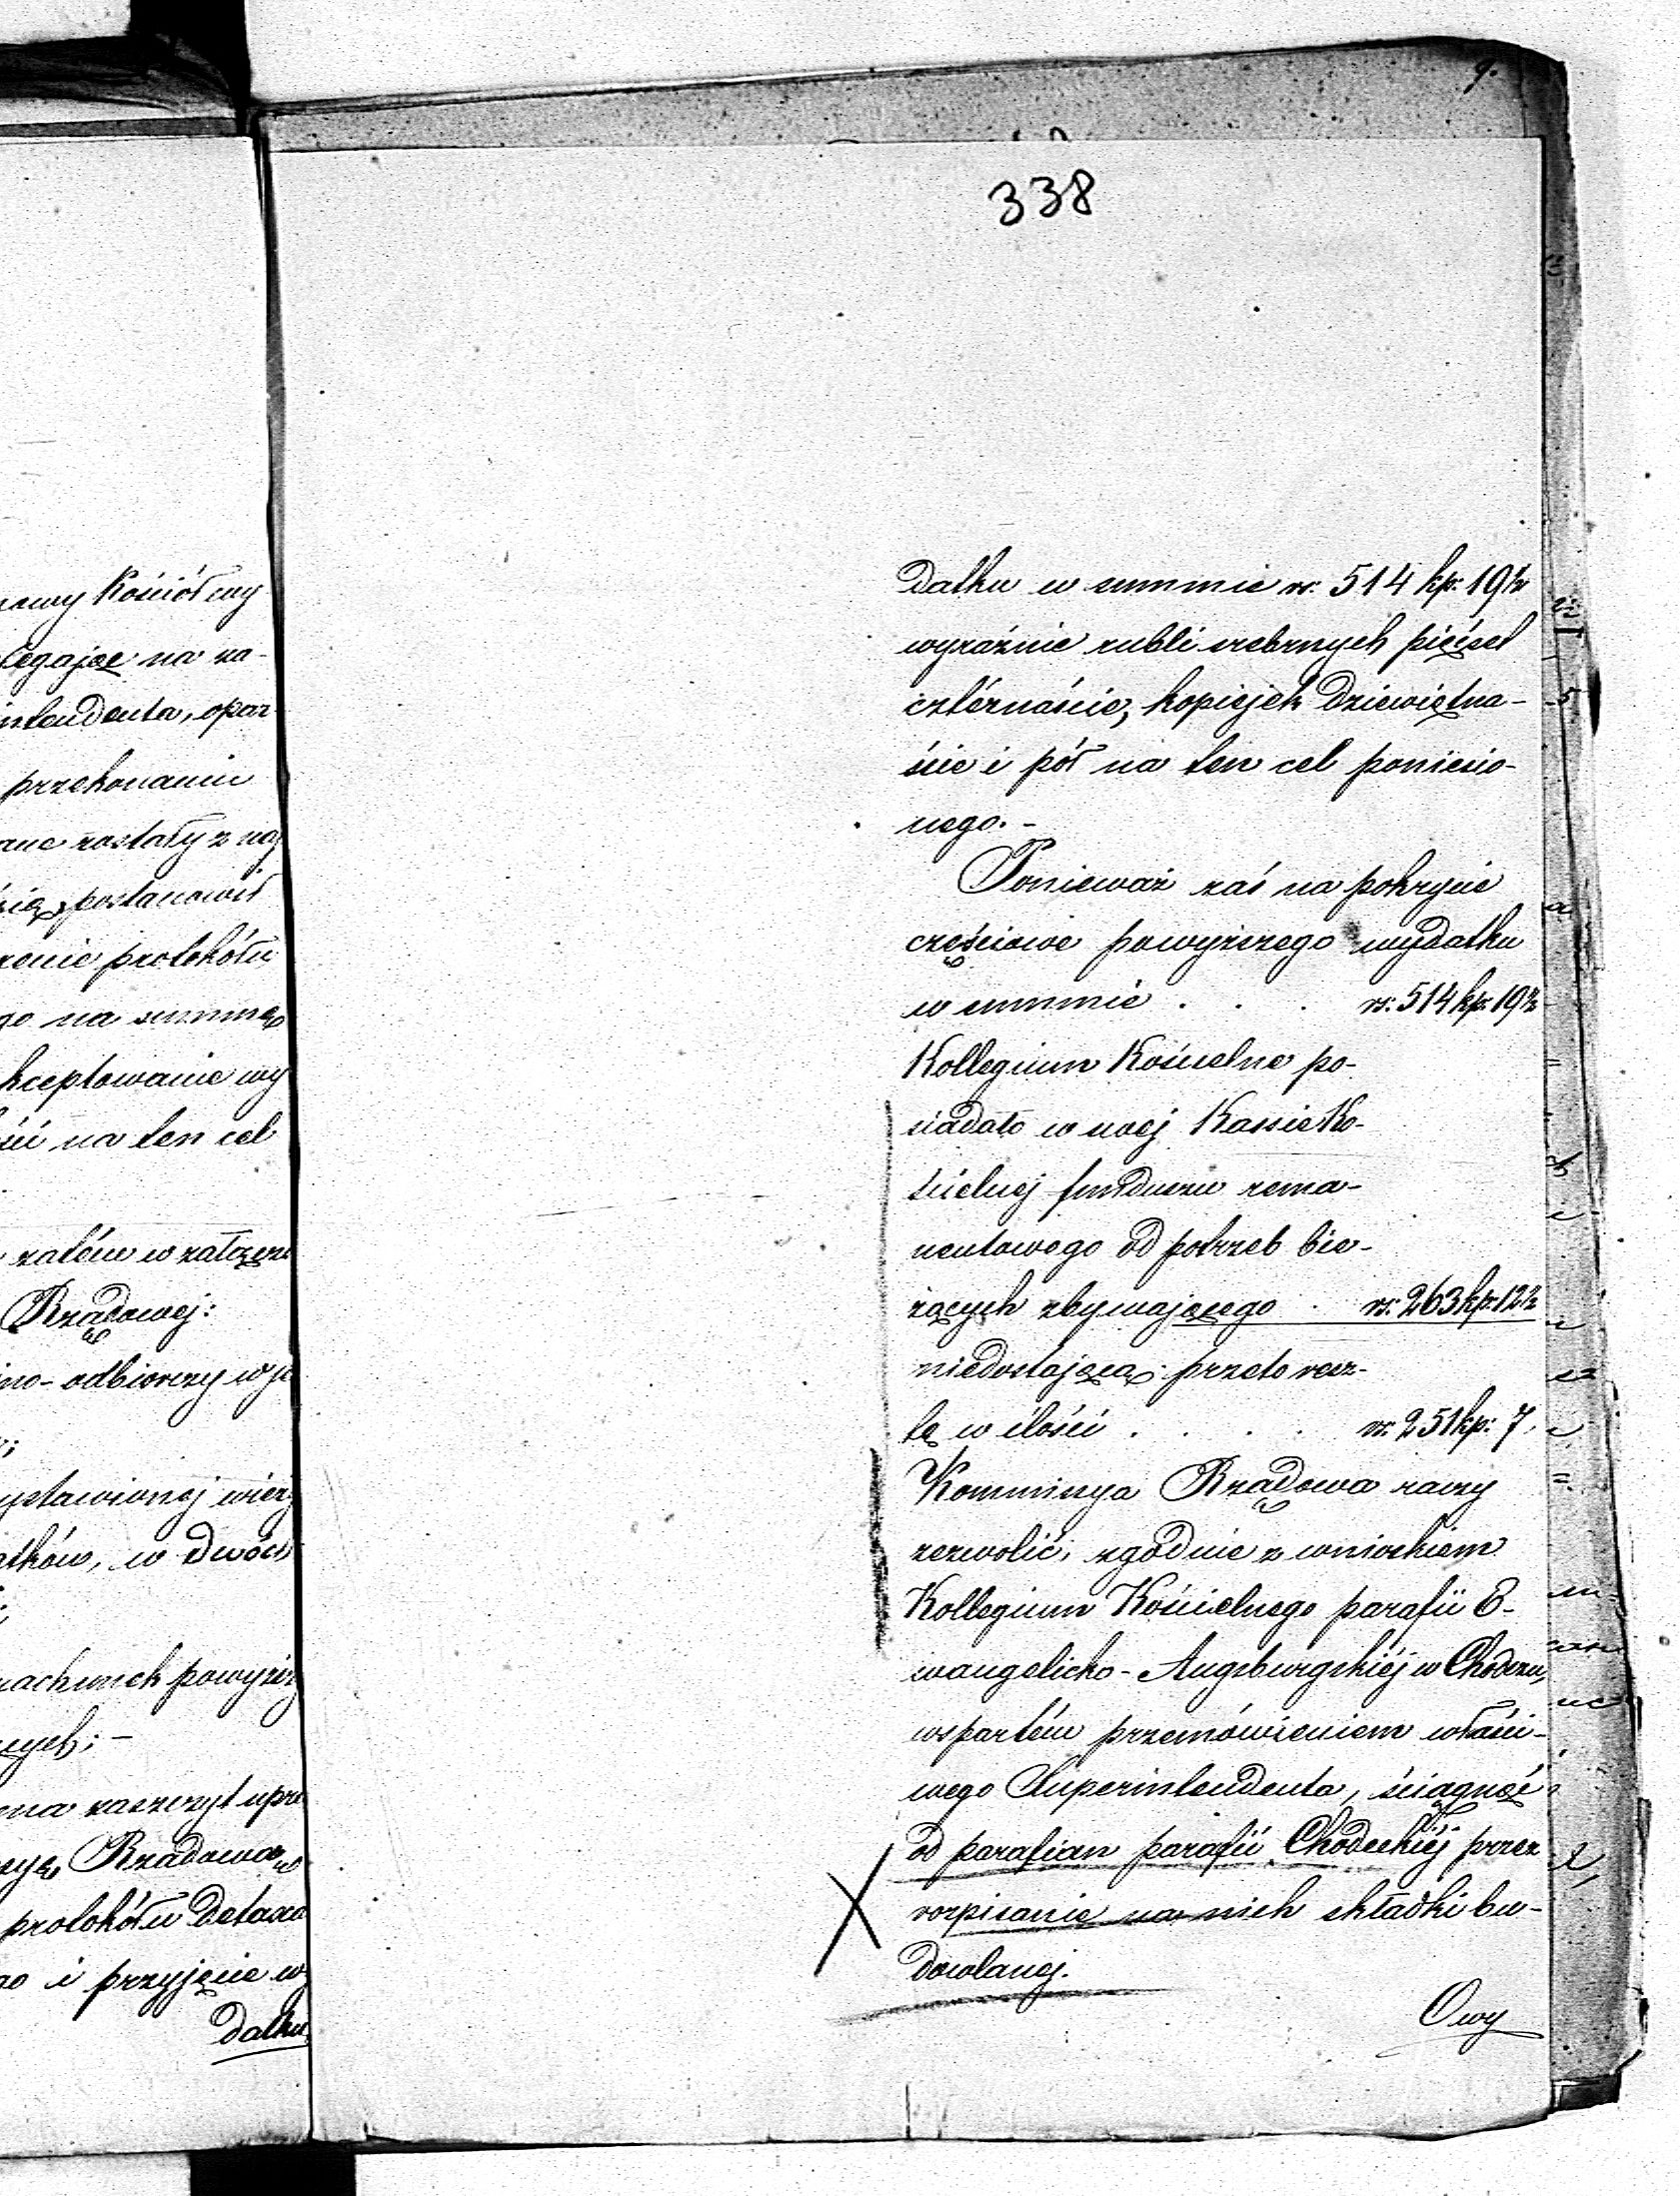 9.
338
nowy Kościół wy
legając na za-
intendenta, opar-
przekonaniu
ane zostały z na
się, postanowił
zenie protokółu
go na summę
kceptowanie wy
ści na ten cel
zatém w załącze
Rządowej:
no-odbiorczy w je
ystawionej wież
atków, w dwóch
rachunek powyższ
ących; -
ma zaszczyt upra
Rządowa
protokółu detaxa
go i przyjęcie wy
datku
datku w summie rs. 514 kp. 19½
wyraźnie rubli srebrnych pięćset
cztérnaście, kopiejek dziewiętna-
ście i pół na ten cel poniesio-
nego. -
Ponieważ zaś na pokrycie
częściowe powyższego wydatku
w summie . . . rs: 514 kp. 19½
Kollegium Kościelne po-
siadało w swej Kassie Ko-
ścielnej funduszu rema-
nentowego od potrzeb bie-
żących zbywającego . rs: 263 kp: 12½
niedostającą przeto resz-
tę w ilości . . . . rs. 251 kp: 7.
Kommissya Rządowa raczy
zezwolić, zgodnie z wnioskiem
Kollegium Kościelnego parafii E-
wangelicko-Augsburgskiéj w Chodczu,
wspartém przemówieniem właści-
wego Superintendenta, ściągnąć
od parafian parafii Chodeckiéj przez
rozpisanie na nich składki bu-
dowlanej.
Owy